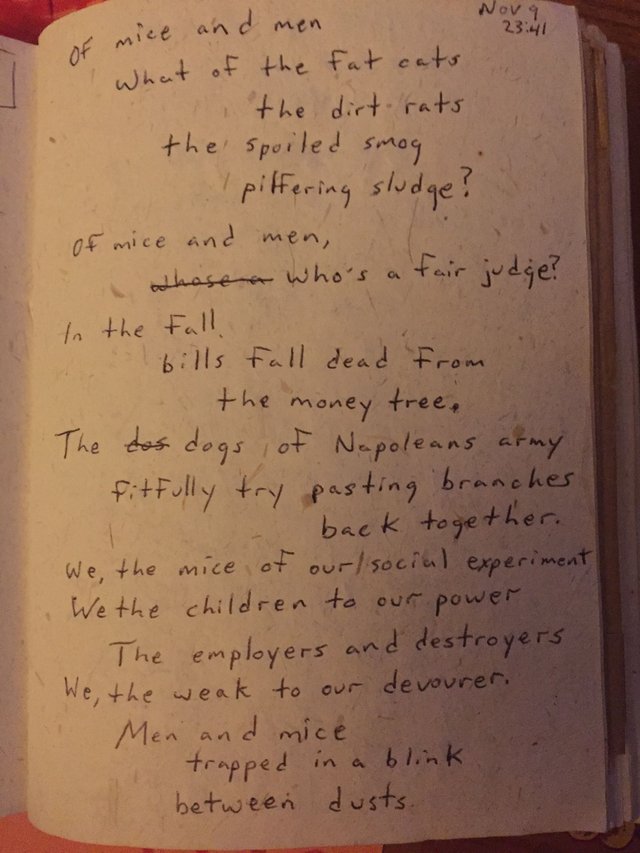 Nov 9
23:41
Of mice and men
What of the fat cats
the dirt rats
the spoiled smog
piffering sludge?
Of mice and men,
whose a who's a fair judge?
In the Fall.
bills fall dead from
the money tree.
The dos dogs of Napoleans army
fitfully try pasting branches
back together.
We, the mice of our/social experiment
We the children to our power
The employers and destroyers
We, the weak to our devourer.
Men and mice
trapped in a blink
between dusts.